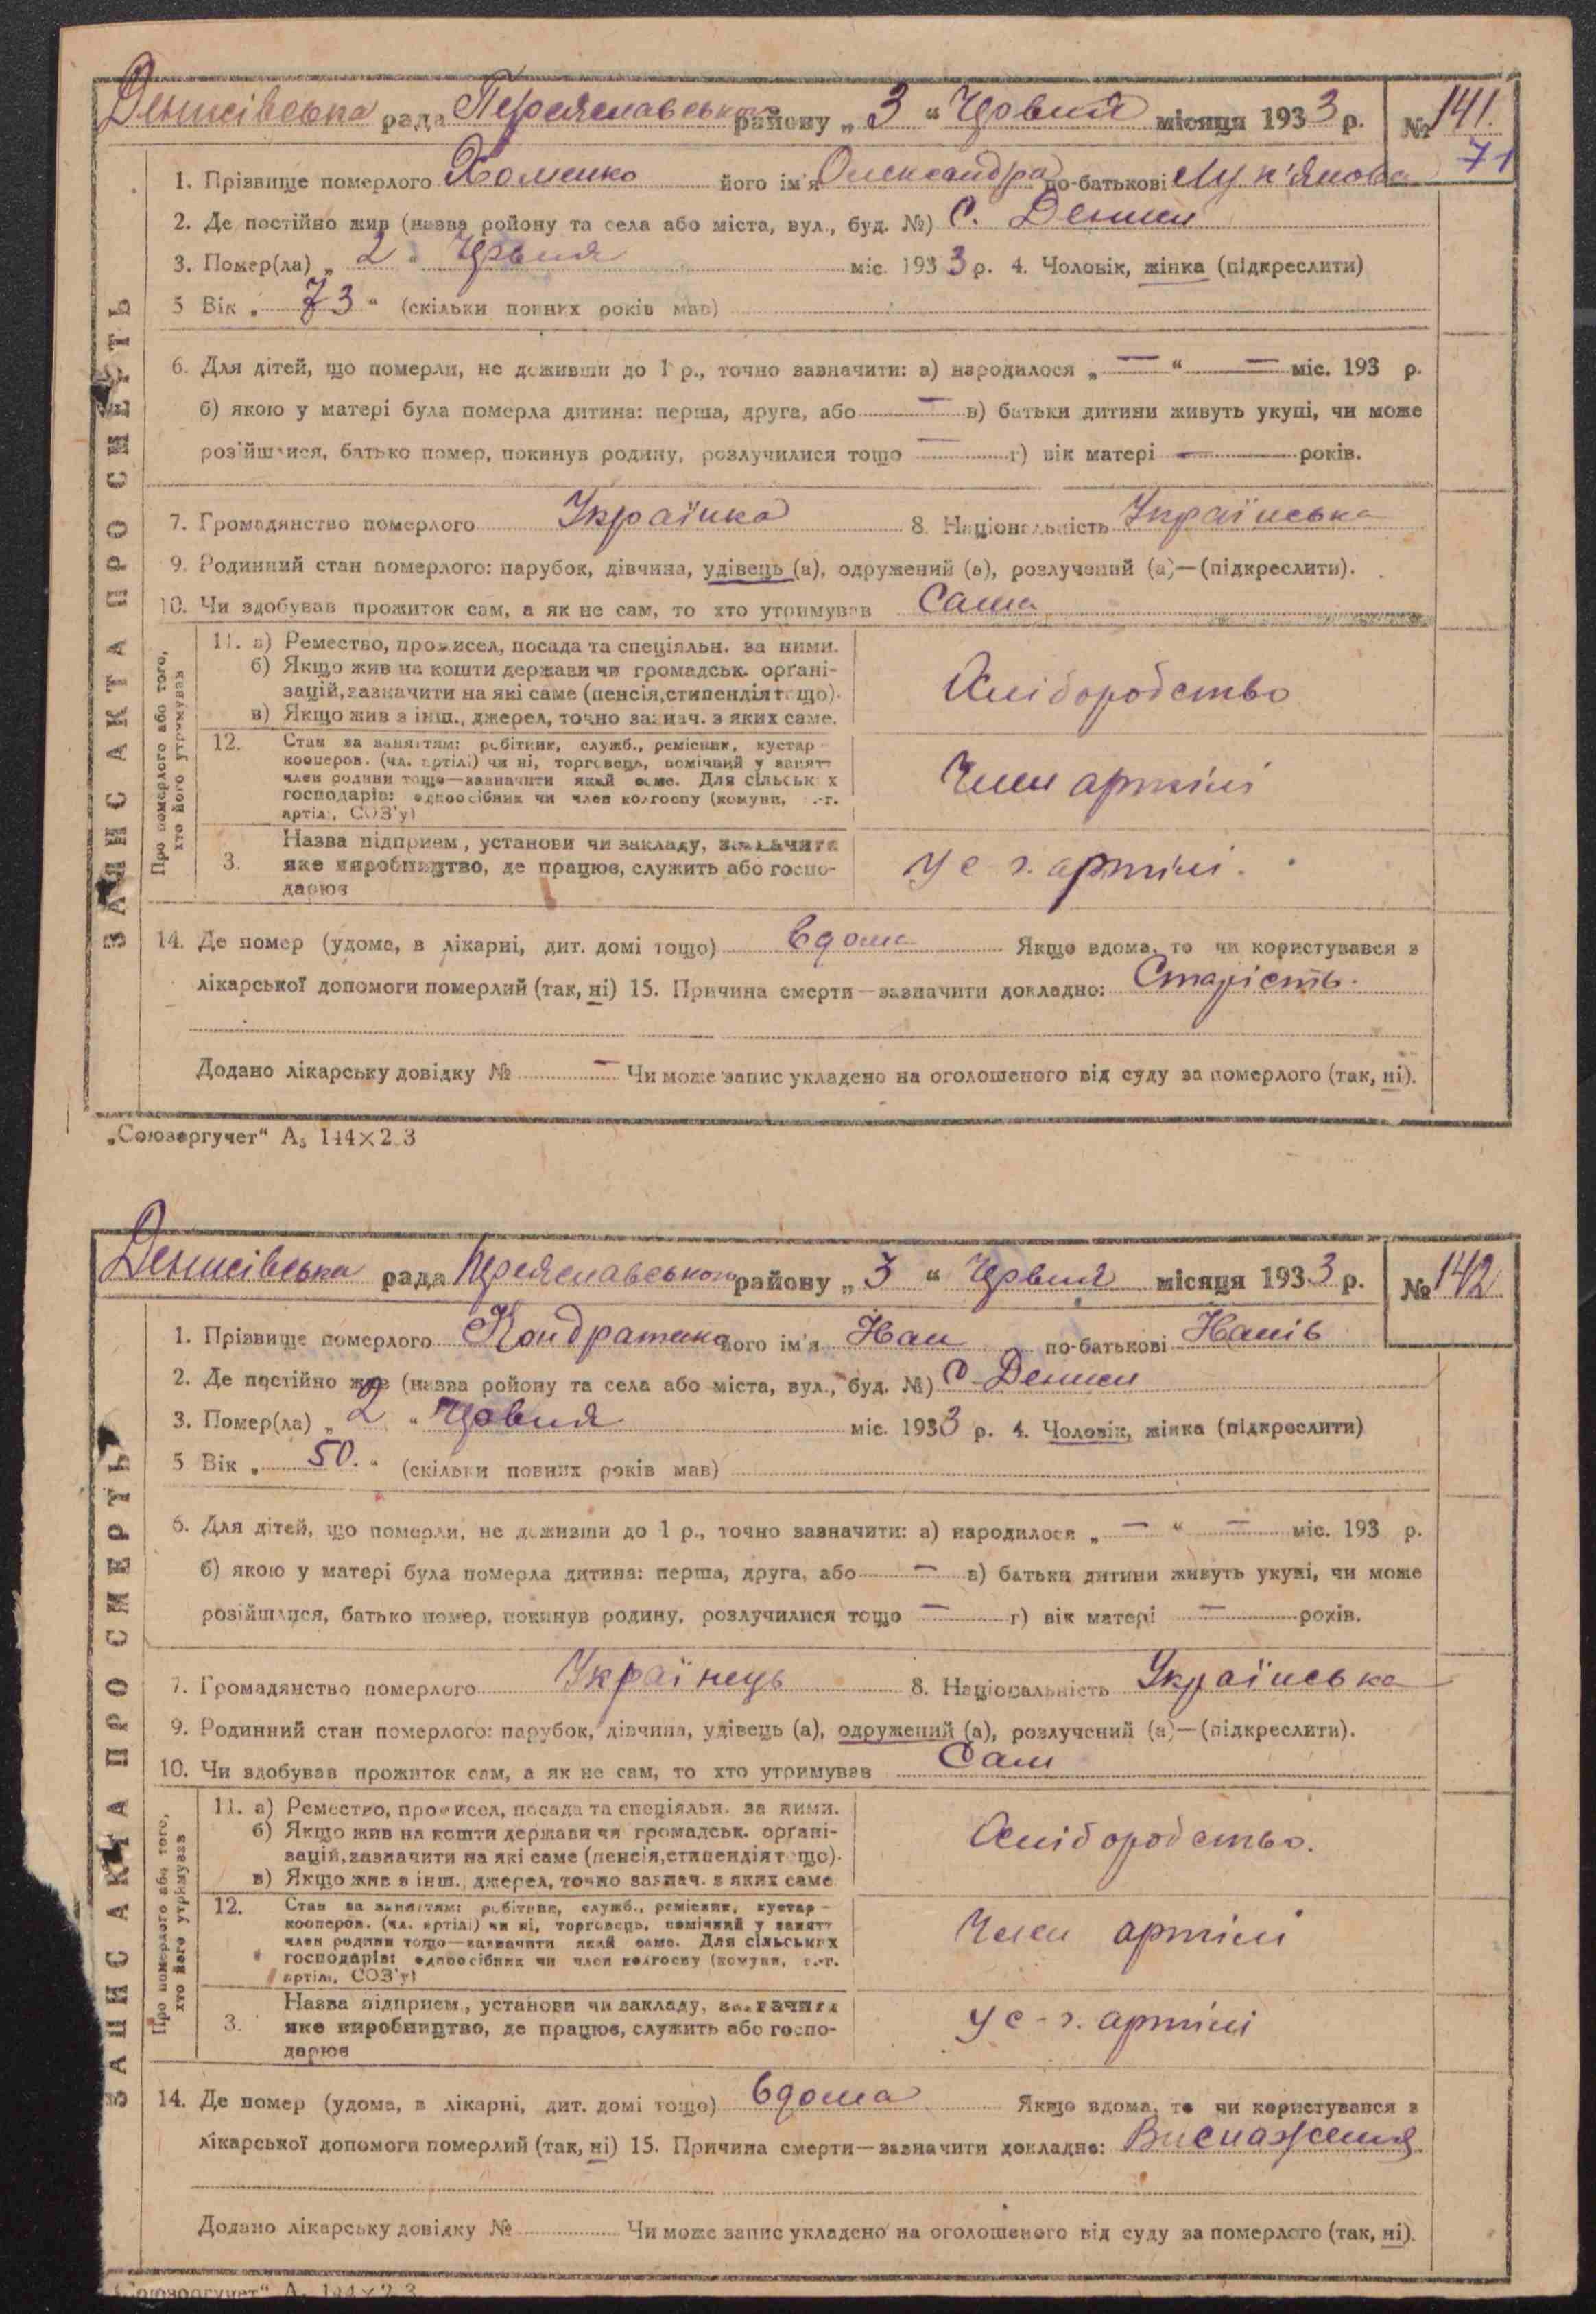 Денисівська рада Переяславського району „ 3 “ Червня місяця 1933 р. № 141.
71
1. Прізвище померлого Хоменко його ім'я Олександра по-батькові Лук'янова
2. Де постійно жив (назва ройону та села або міста, вул., буд. №) С. Дениси
3. Помер(ла) „ 2 “ Червня міс. 1933 р. 4. Чоловік, жінка (підкреслити)
5 Вік „ 73 “ (скільки повних років мав)
6. Для дітей, що померли, не доживши до 1 р., точно зазначити: а) народилося „ — “ — міс. 193 р.
б) якою у матері була померла дитина: перша, друга, або — в) батьки дитини живуть укупі, чи може
розійшлися, батько помер, покинув родину, розлучилися тощо — г) вік матері — років.
7. Громадянство померлого Українка 8. Національність Українська
9. Родинний стан померлого: парубок, дівчина, удівець (а), одружений (а), розлучений (а)—(підкреслити).
10. Чи здобував прожиток сам, а як не сам, то хто утримував Сама
ЗАПИС АКТА ПРО СМЕРТЬ
Про померлого або того, хто його утримував
11. а) Ремество, промисел, посада та спеціяльн. за ними.
б) Якщо жив на кошти держави чи громадськ. орґані-
зацій, зазначити на які саме (пенсія, стипендія тощо).
в) Якщо жив з інш., джерел, точно зазнач. з яких саме.
Хліборобство
12. Стан за заняттям: робітник, служб., ремісник, кустар-
кооперов. (чл. артілі) чи ні, торговець, помічний у занятт
член родини тощо—зазначити який саме. Для сільських
господарів: одноосібник чи член колгоспу (комуни, с.-г.
артілі, СОЗ'у)
Член артілі
3. Назва підприєм., установи чи закладу, зазначити
яке виробництво, де працює, служить або госпо-
дарює
У с-г. артілі.
14. Де помер (удома, в лікарні, дит. домі тощо) вдома Якщо вдома, то чи користувався з
лікарської допомоги померлий (так, ні) 15. Причина смерти—зазначити докладно: Старість.
Додано лікарську довідку № — Чи може запис укладено на оголошеного від суду за померлого (так, ні).
„Союзоргучет“ А5 144×2 3
Денисівська рада Переяславського району „ 3 “ Червня місяця 1933 р. № 142
1. Прізвище померлого Кондратенко його ім'я Іван по-батькові Іванів
2. Де постійно жив (назва ройону та села або міста, вул., буд. №) С. Дениси
3. Помер(ла) „ 2 “ Червня міс. 1933 р. 4. Чоловік, жінка (підкреслити)
5 Вік „ 50. “ (скільки повних років мав)
6. Для дітей, що померли, не доживши до 1 р., точно зазначити: а) народилося „ — “ — міс. 193 р.
б) якою у матері була померла дитина: перша, друга, або — в) батьки дитини живуть укупі, чи може
розійшлися, батько помер, покинув родину, розлучилися тощо — г) вік матері — років.
7. Громадянство померлого Українець 8. Національність Українська
9. Родинний стан померлого: парубок, дівчина, удівець (а), одружений (а), розлучений (а)—(підкреслити).
10. Чи здобував прожиток сам, а як не сам, то хто утримував Сам
ЗАПИС АКТА ПРО СМЕРТЬ
Про померлого або того, хто його утримував
11. а) Ремество, промисел, посада та спеціяльн. за ними.
б) Якщо жив на кошти держави чи громадськ. орґані-
зацій, зазначити на які саме (пенсія, стипендія тощо).
в) Якщо жив з інш., джерел, точно зазнач. з яких саме
Хліборобство.
12. Стан за заняттям: робітник, служб., ремісник, кустар-
кооперов. (чл. артілі) чи ні, торговець, помічний у занятт
член родини тощо—зазначити який саме. Для сільських
господарів: одноосібник чи член колгоспу (комуни, с.-г.
артілі, СОЗ'у)
Член артілі
3. Назва підприєм., установи чи закладу, зазначити
яке виробництво, де працює, служить або госпо-
дарює
У с-г. артілі
14. Де помер (удома, в лікарні, дит. домі тощо) вдома Якщо вдома, то чи користувався з
лікарської допомоги померлий (так, ні) 15. Причина смерти—зазначити докладно: Виснаження
Додано лікарську довідку № Чи може запис укладено на оголошеного від суду за померлого (так, ні).
„Союзоргучет“ А5 144×2 3